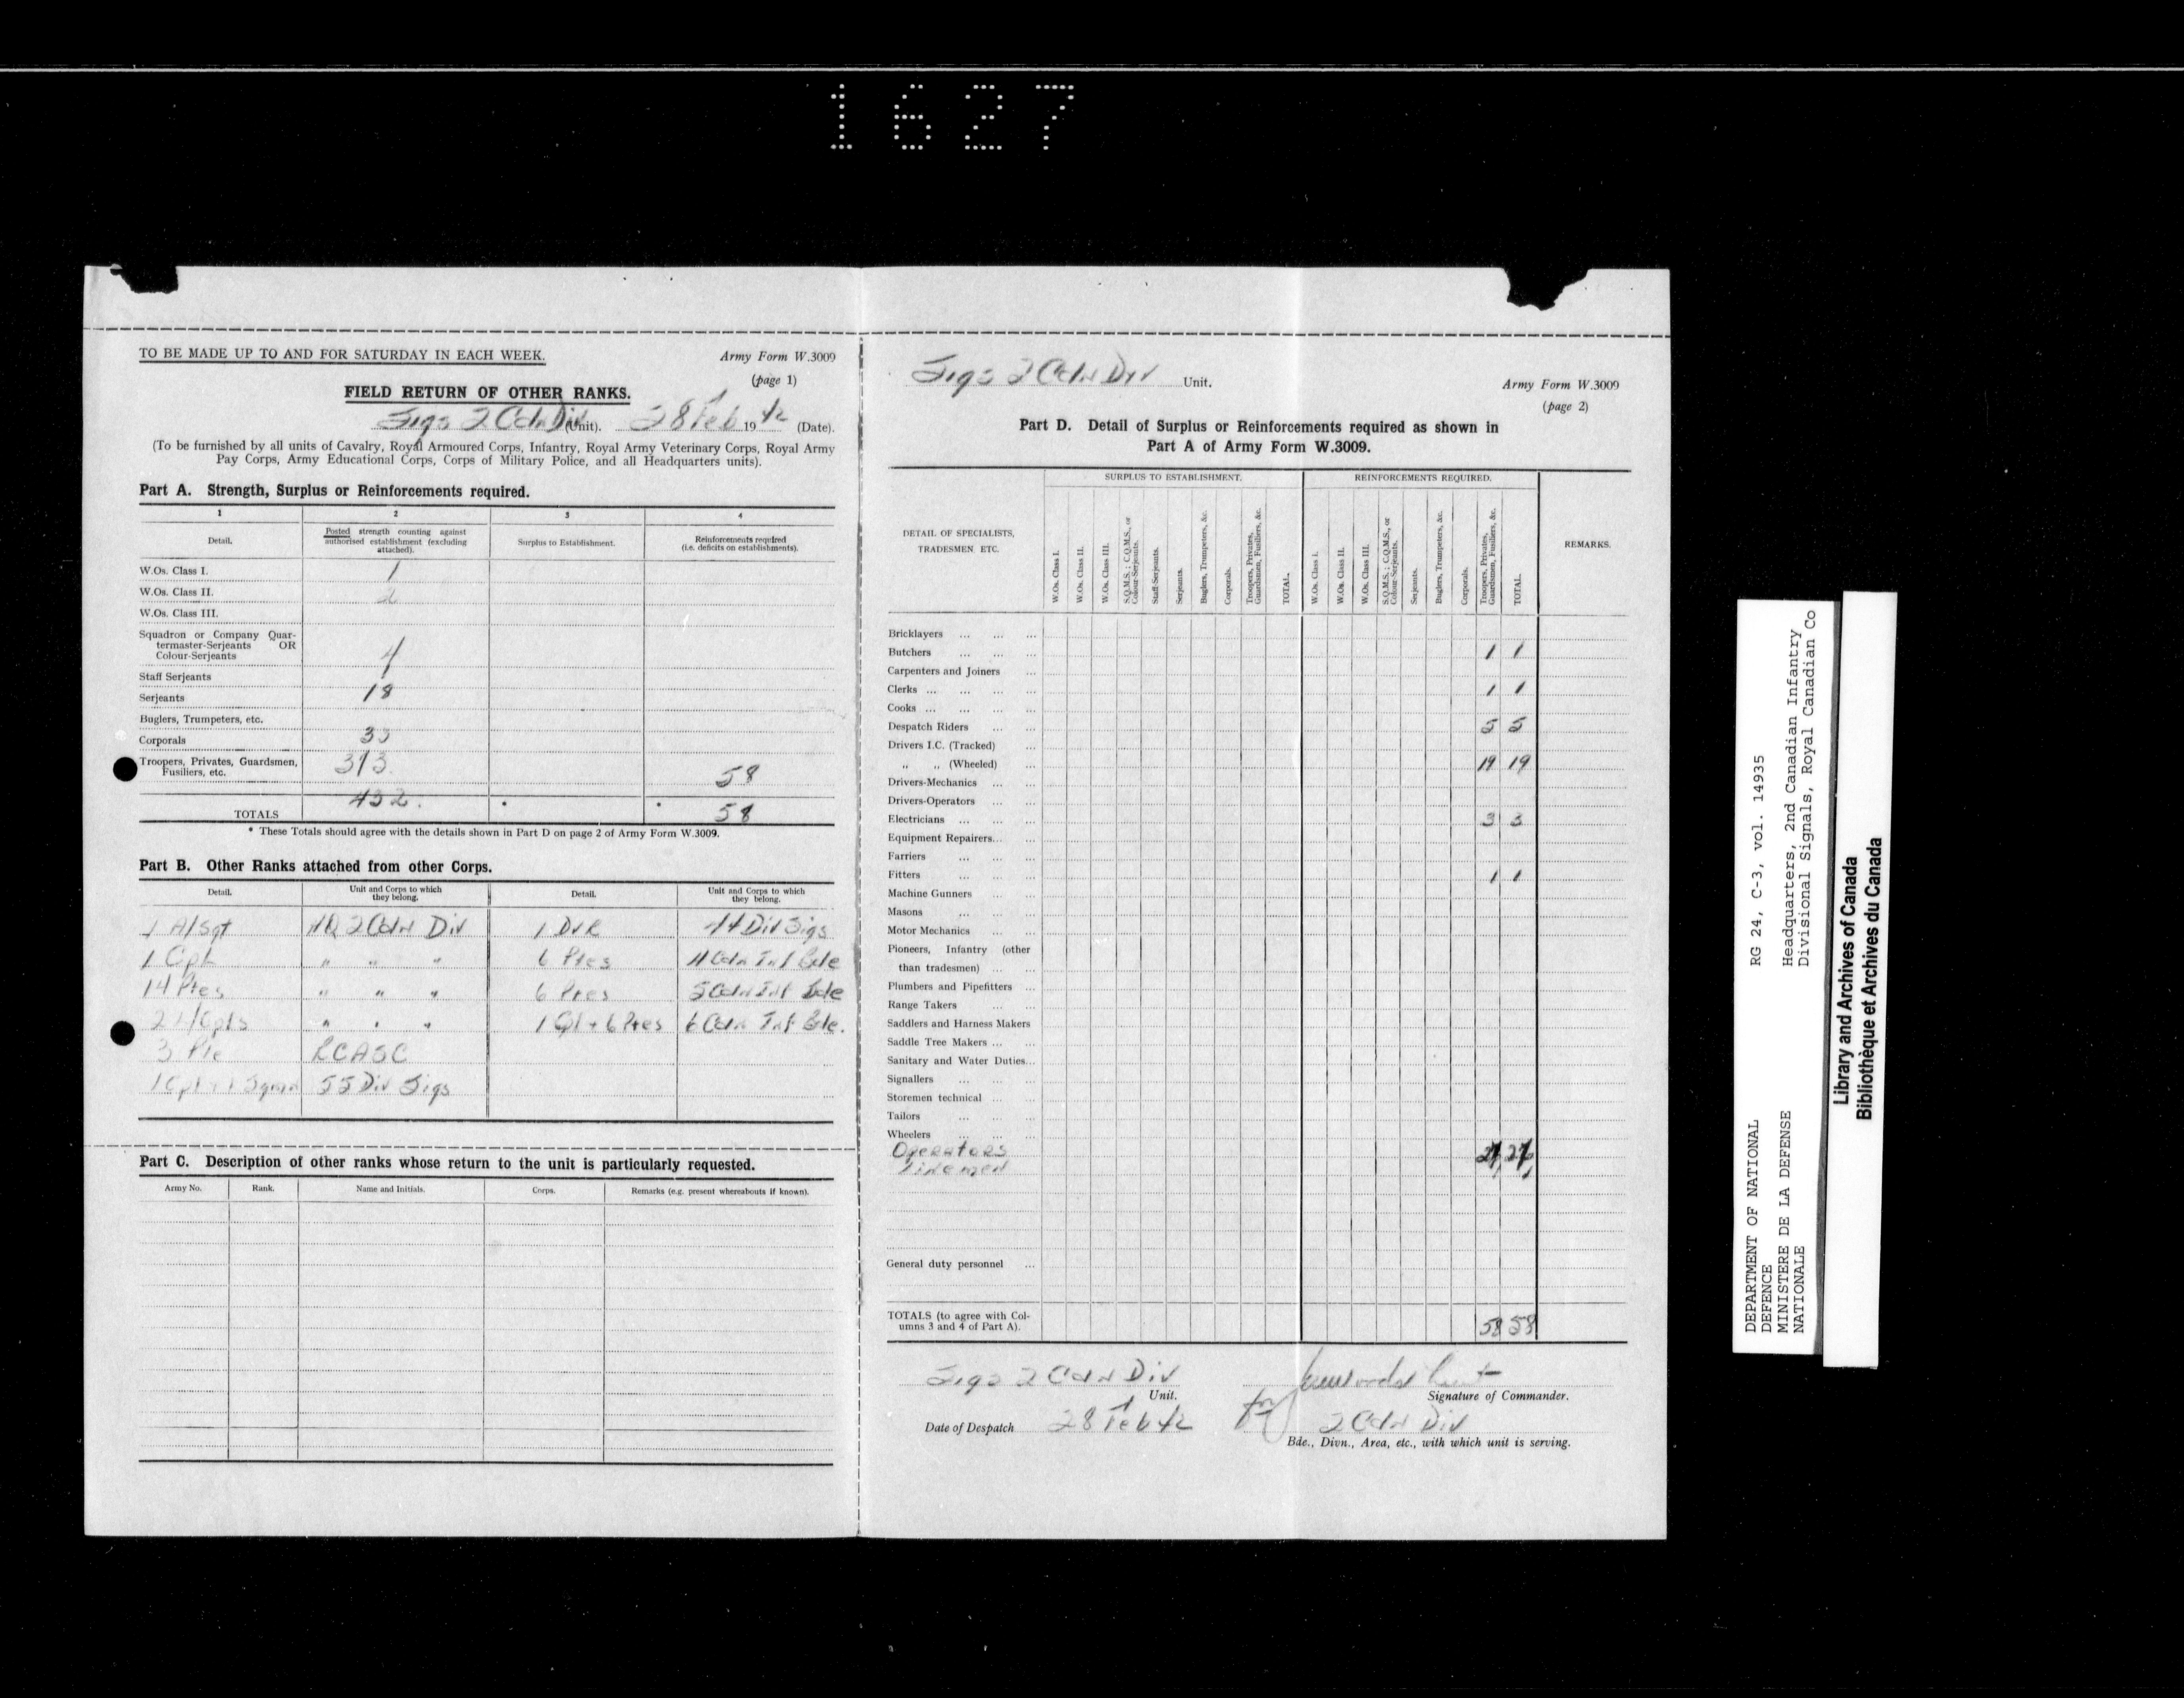 1627
TO BE MADE UP TO AND FOR SATURDAY IN EACH WEEK.
Army Form W.3009
(page 1)
FIELD RETURN OF OTHER RANKS.
Sigs 2 Cdn Div (Unit). 28 Feb 1942 (Date).
(To be furnished by all units of Cavalry, Royal Armoured Corps, Infantry, Royal Army Veterinary Corps, Royal Army
Pay Corps, Army Educational Corps, Corps of Military Police, and all Headquarters units).
Part A. Strength, Surplus or Reinforcements required.
1 2 3 4
Detail. Posted strength counting against authorised establishment (excluding attached). Surplus to Establishment. Reinforcements required (i.e. deficits on establishments).
W.Os. Class I. 1
W.Os. Class II. 2
W.Os. Class III.
Squadron or Company Quar-
termaster-Serjeants OR
Colour-Serjeants 4
Staff Serjeants
Serjeants 18
Buglers, Trumpeters, etc.
Corporals
Troopers, Privates, Guardsmen, 313
Fusiliers, etc. 58
TOTALS 58
* These Totals should agree with the details shown in Part D on page 2 of Army Form W.3009.
Part B. Other Ranks attached from other Corps.
Detail. Unit and Corps to which they belong. Detail. Unit and Corps to which they belong.
1 A/Sgt HQ 2 Cdn Div 1 DvR Div Sigs
1 Cpl " " " 6 Ptes 4 Cdn Inf Bde
14 Ptes " " " 6 Ptes 5 Cdn Inf Bde
2 L/Cpls " " " 1 Cpl + 6 Ptes 6 Cdn Inf Bde.
3 Pte RCASC
1 Cpl + 1 Sgmn 55 Div Sigs
Part C. Description of other ranks whose return to the unit is particularly requested.
Army No. Rank. Name and Initials. Corps. Remarks (e.g. present whereabouts if known).
Sigs 2 Cdn Div Unit.
Army Form W.3009
(page 2)
Part D. Detail of Surplus or Reinforcements required as shown in
Part A of Army Form W.3009.
SURPLUS TO ESTABLISHMENT. REINFORCEMENTS REQUIRED.
DETAIL OF SPECIALISTS,
TRADESMEN ETC.
W.Os. Class I. W.Os. Class II. W.Os. Class III. S.Q.M.S.; C.Q.M.S., or Colour-Serjeants. Staff Serjeants. Serjeants. Buglers, Trumpeters, &c. Corporals. Troopers, Privates, Guardsmen, Fusiliers, &c. TOTAL.
W.Os. Class I. W.Os. Class II. W.Os. Class III. S.Q.M.S.; C.Q.M.S., or Colour-Serjeants. Serjeants. Buglers, Trumpeters, &c. Corporals. Troopers, Privates, Guardsmen, Fusiliers, &c. TOTAL.
REMARKS.
Bricklayers ... ... ...
Butchers ... ... ... 1 1
Carpenters and Joiners ...
Clerks ... ... ... ... 1 1
Cooks ... ... ... ...
Despatch Riders ... ... 5 5
Drivers I.C. (Tracked) ...
„ „ (Wheeled) ... 19 19
Drivers-Mechanics ... ...
Drivers-Operators ... ...
Electricians ... ... ... 3 3
Equipment Repairers... ...
Farriers ... ... ...
Fitters ... ... ... 1 1
Machine Gunners ... ...
Masons ... ... ...
Motor Mechanics ... ...
Pioneers, Infantry (other
than tradesmen) ... ...
Plumbers and Pipefitters ...
Range Takers ... ...
Saddlers and Harness Makers
Saddle Tree Makers ... ...
Sanitary and Water Duties...
Signallers ... ... ...
Storemen technical ... ...
Tailors ... ... ...
Wheelers ... ... ...
Operators
Linemen
General duty personnel ...
TOTALS (to agree with Col-
umns 3 and 4 of Part A). 58 58
Sigs 2 Cdn Div
Unit.
Signature of Commander.
Date of Despatch 28 Feb 42 for 2 Cdn Div
Bde., Divn., Area, etc., with which unit is serving.
DEPARTMENT OF NATIONAL
DEFENCE
MINISTERE DE LA DEFENSE
NATIONALE
RG 24, C-3, vol. 14935
Headquarters, 2nd Canadian Infantry
Divisional Signals, Royal Canadian Co
Library and Archives of Canada
Bibliothèque et Archives du Canada